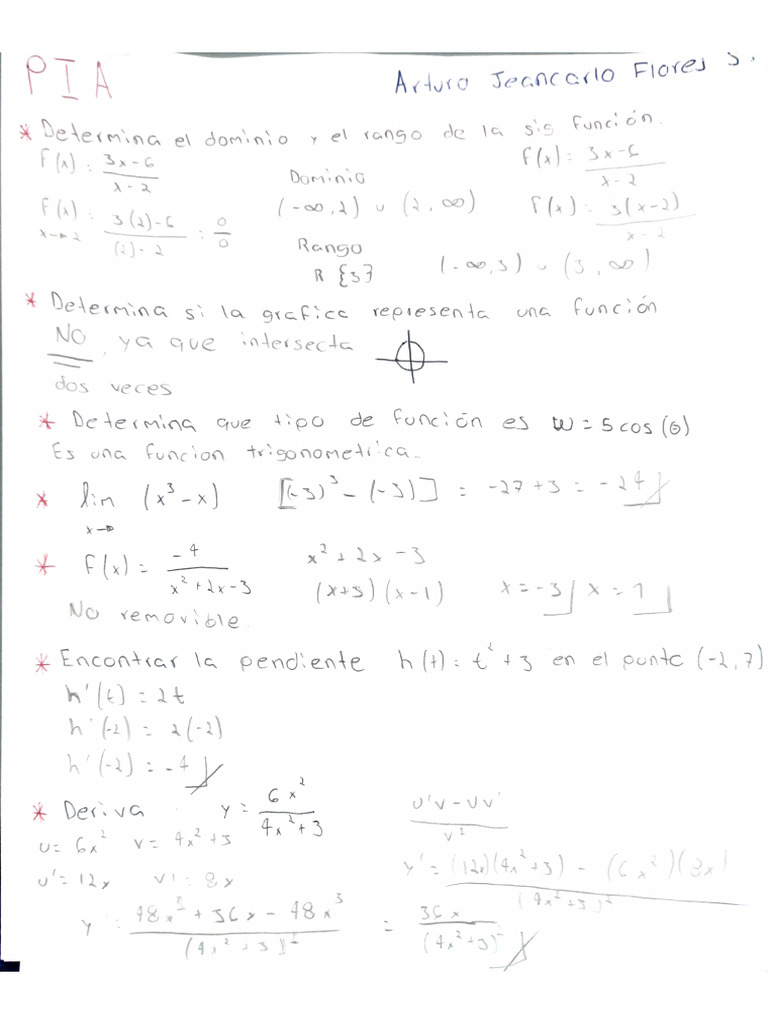 PIA
Arturo Jeancarlo Flores S.
* Determina el dominio y el rango de la sig función.
f(x): 3x-6 / x-2
Dominio
f(x): 3x-6 / x-2
f(x): x→2 3(2)-6 / (2)-2 : 0/0
(-∞,2) ∪ (2,∞)
f(x): 3(x-2) / x-2
Rango
R {3}
(-∞,3) ∪ (3,∞)
* Determina si la grafica representa una función
NO, ya que intersecta
dos veces
* Determina que tipo de función es w = 5cos(θ)
Es una funcion trigonometrica..
* lim x→ (x³-x) [(-3)³-(-3)] = -27+3 = -24
* f(x) = -4 / x²+2x-3 x²+2x-3
(x+3)(x-1) x=-3 x=1
No removible.
* Encontrar la pendiente h(t): t²+3 en el punto (-2,7)
h'(t) = 2t
h'(-2) = 2(-2)
h'(-2) = -4
* Deriva y = 6x² / 4x²+3 u'v-vv' / v²
u= 6x² v= 4x²+3
y' = (12x)(4x²+3) - (6x²)(8x) / (4x²+3)²
u'= 12x v': 8x
y' = 48x³+36x-48x³ / (4x²+3)² = 36x / (4x²+3)²